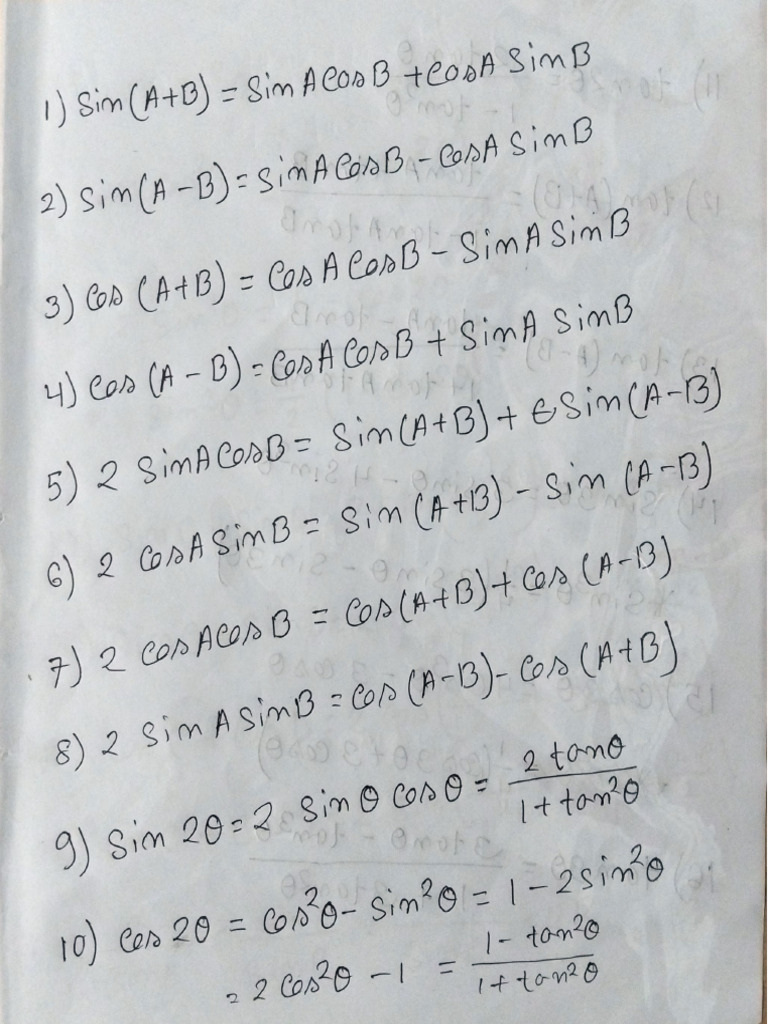 1) Sin(A+B) = Sin A Cos B + Cos A Sin B
2) Sin(A - B) = Sin A Cos B - Cos A Sin B
3) Cos (A+B) = Cos A Cos B - Sin A Sin B
4) Cos (A - B) = Cos A Cos B + Sin A Sin B
5) 2 Sin A Cos B = Sin(A+B) + Sin(A-B)
6) 2 Cos A Sin B = Sin (A+B) - Sin (A-B)
7) 2 Cos A Cos B = Cos(A+B) + Cos (A-B)
8) 2 Sin A Sin B = Cos (A-B) - Cos (A+B)
9) Sin 2θ = 2 Sin θ Cos θ = 2 tanθ / 1 + tan²θ
10) Cos 2θ = Cos²θ - Sin²θ = 1 - 2 Sin²θ
= 2 Cos²θ - 1 = 1 - tan²θ / 1 + tan²θ